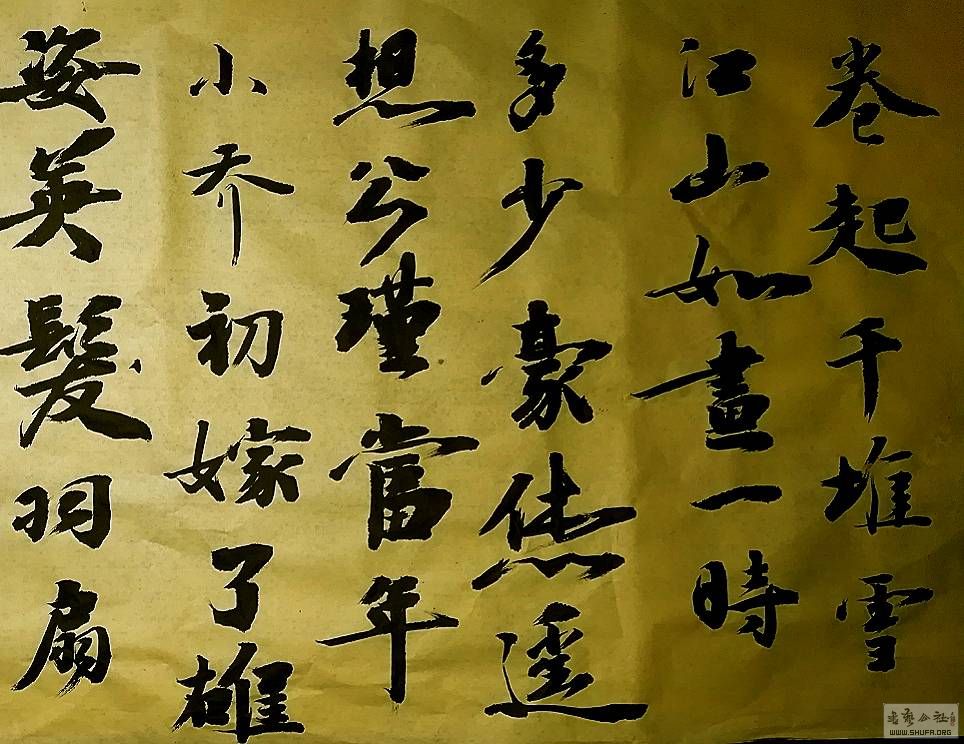 卷起千堆雪
江山如畫一時
多少豪傑遥
想公瑾當年
小乔初嫁了雄
姿英髮羽扇
书艺公社
WWW.SHUFA.ORG